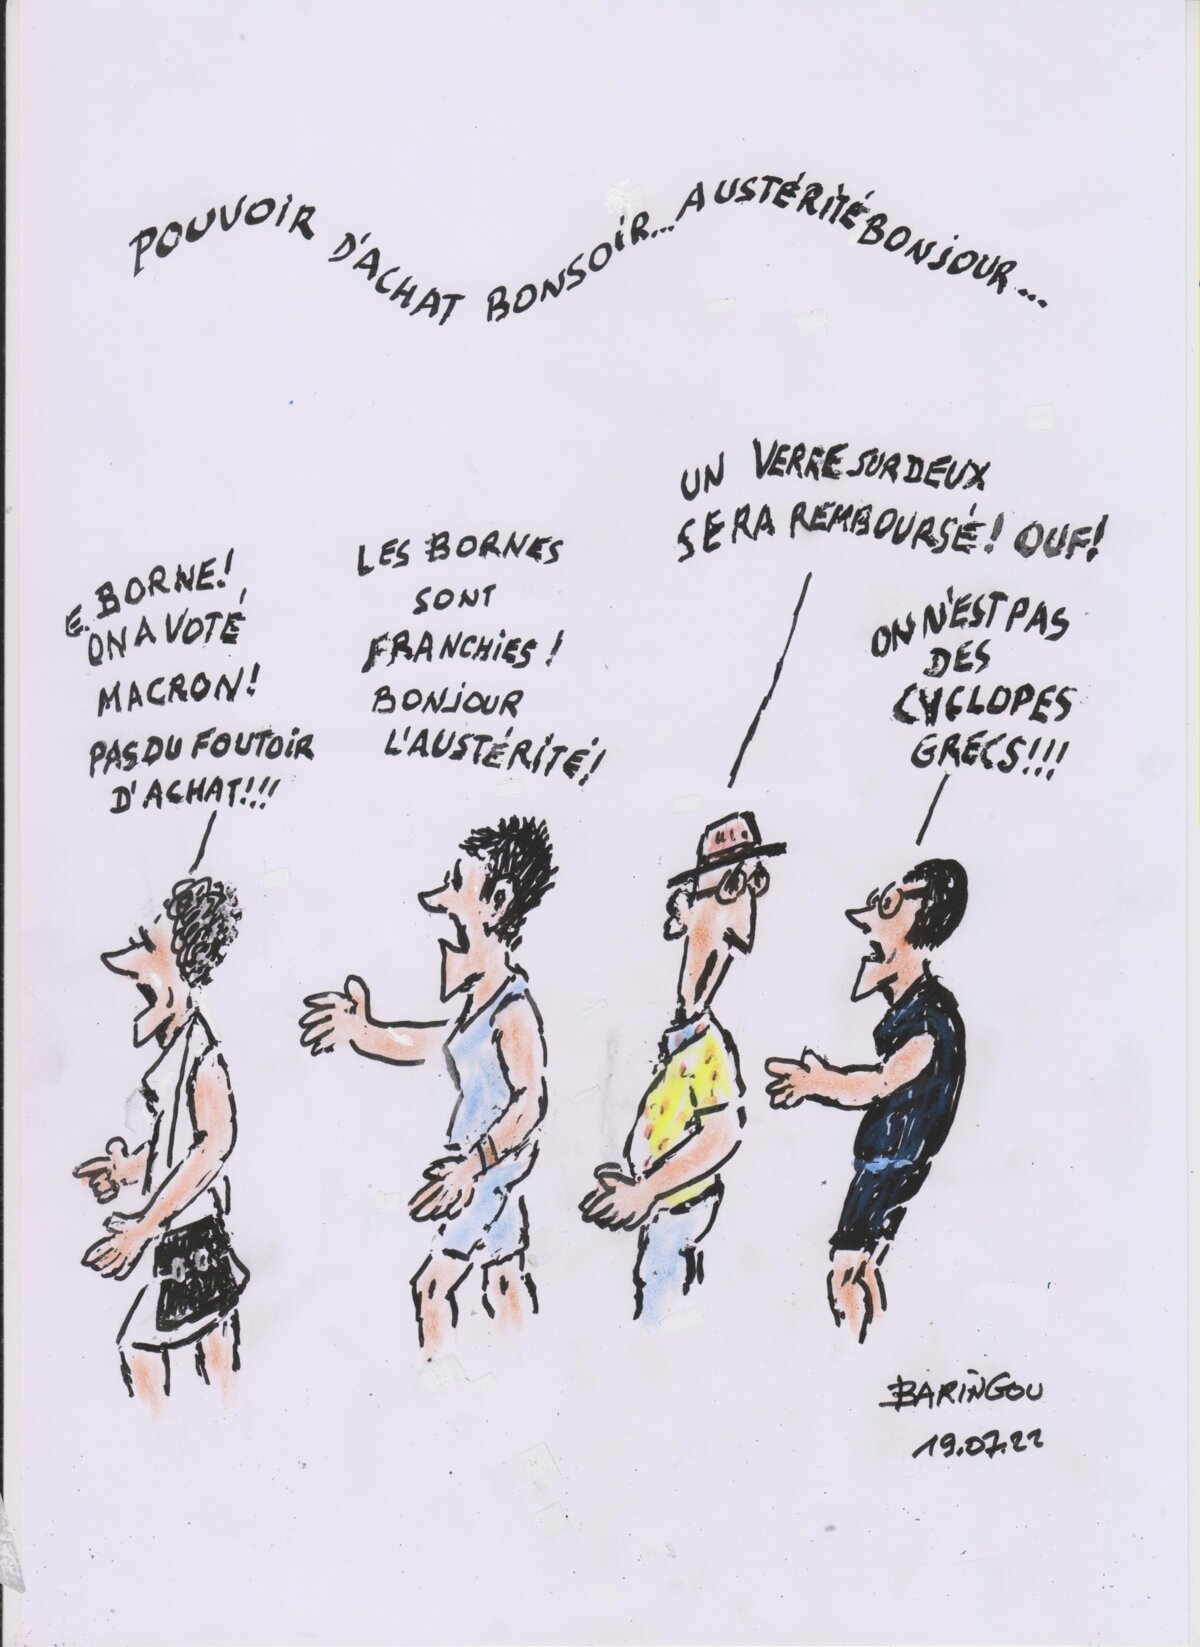 POUVOIR D'ACHAT BONSOIR... AUSTÉRITÉ BONJOUR...
E. BORNE!
ON A VOTÉ
MACRON!
PAS DU FOUTOIR
D'ACHAT!!!
LES BORNES
SONT
FRANCHIES!
BONJOUR
L'AUSTÉRITÉ!
UN VERRE SUR DEUX
SERA REMBOURSÉ! OUF!
ON N'EST PAS
DES
CYCLOPES
GRECS!!!
BARINGOU
19.07.22